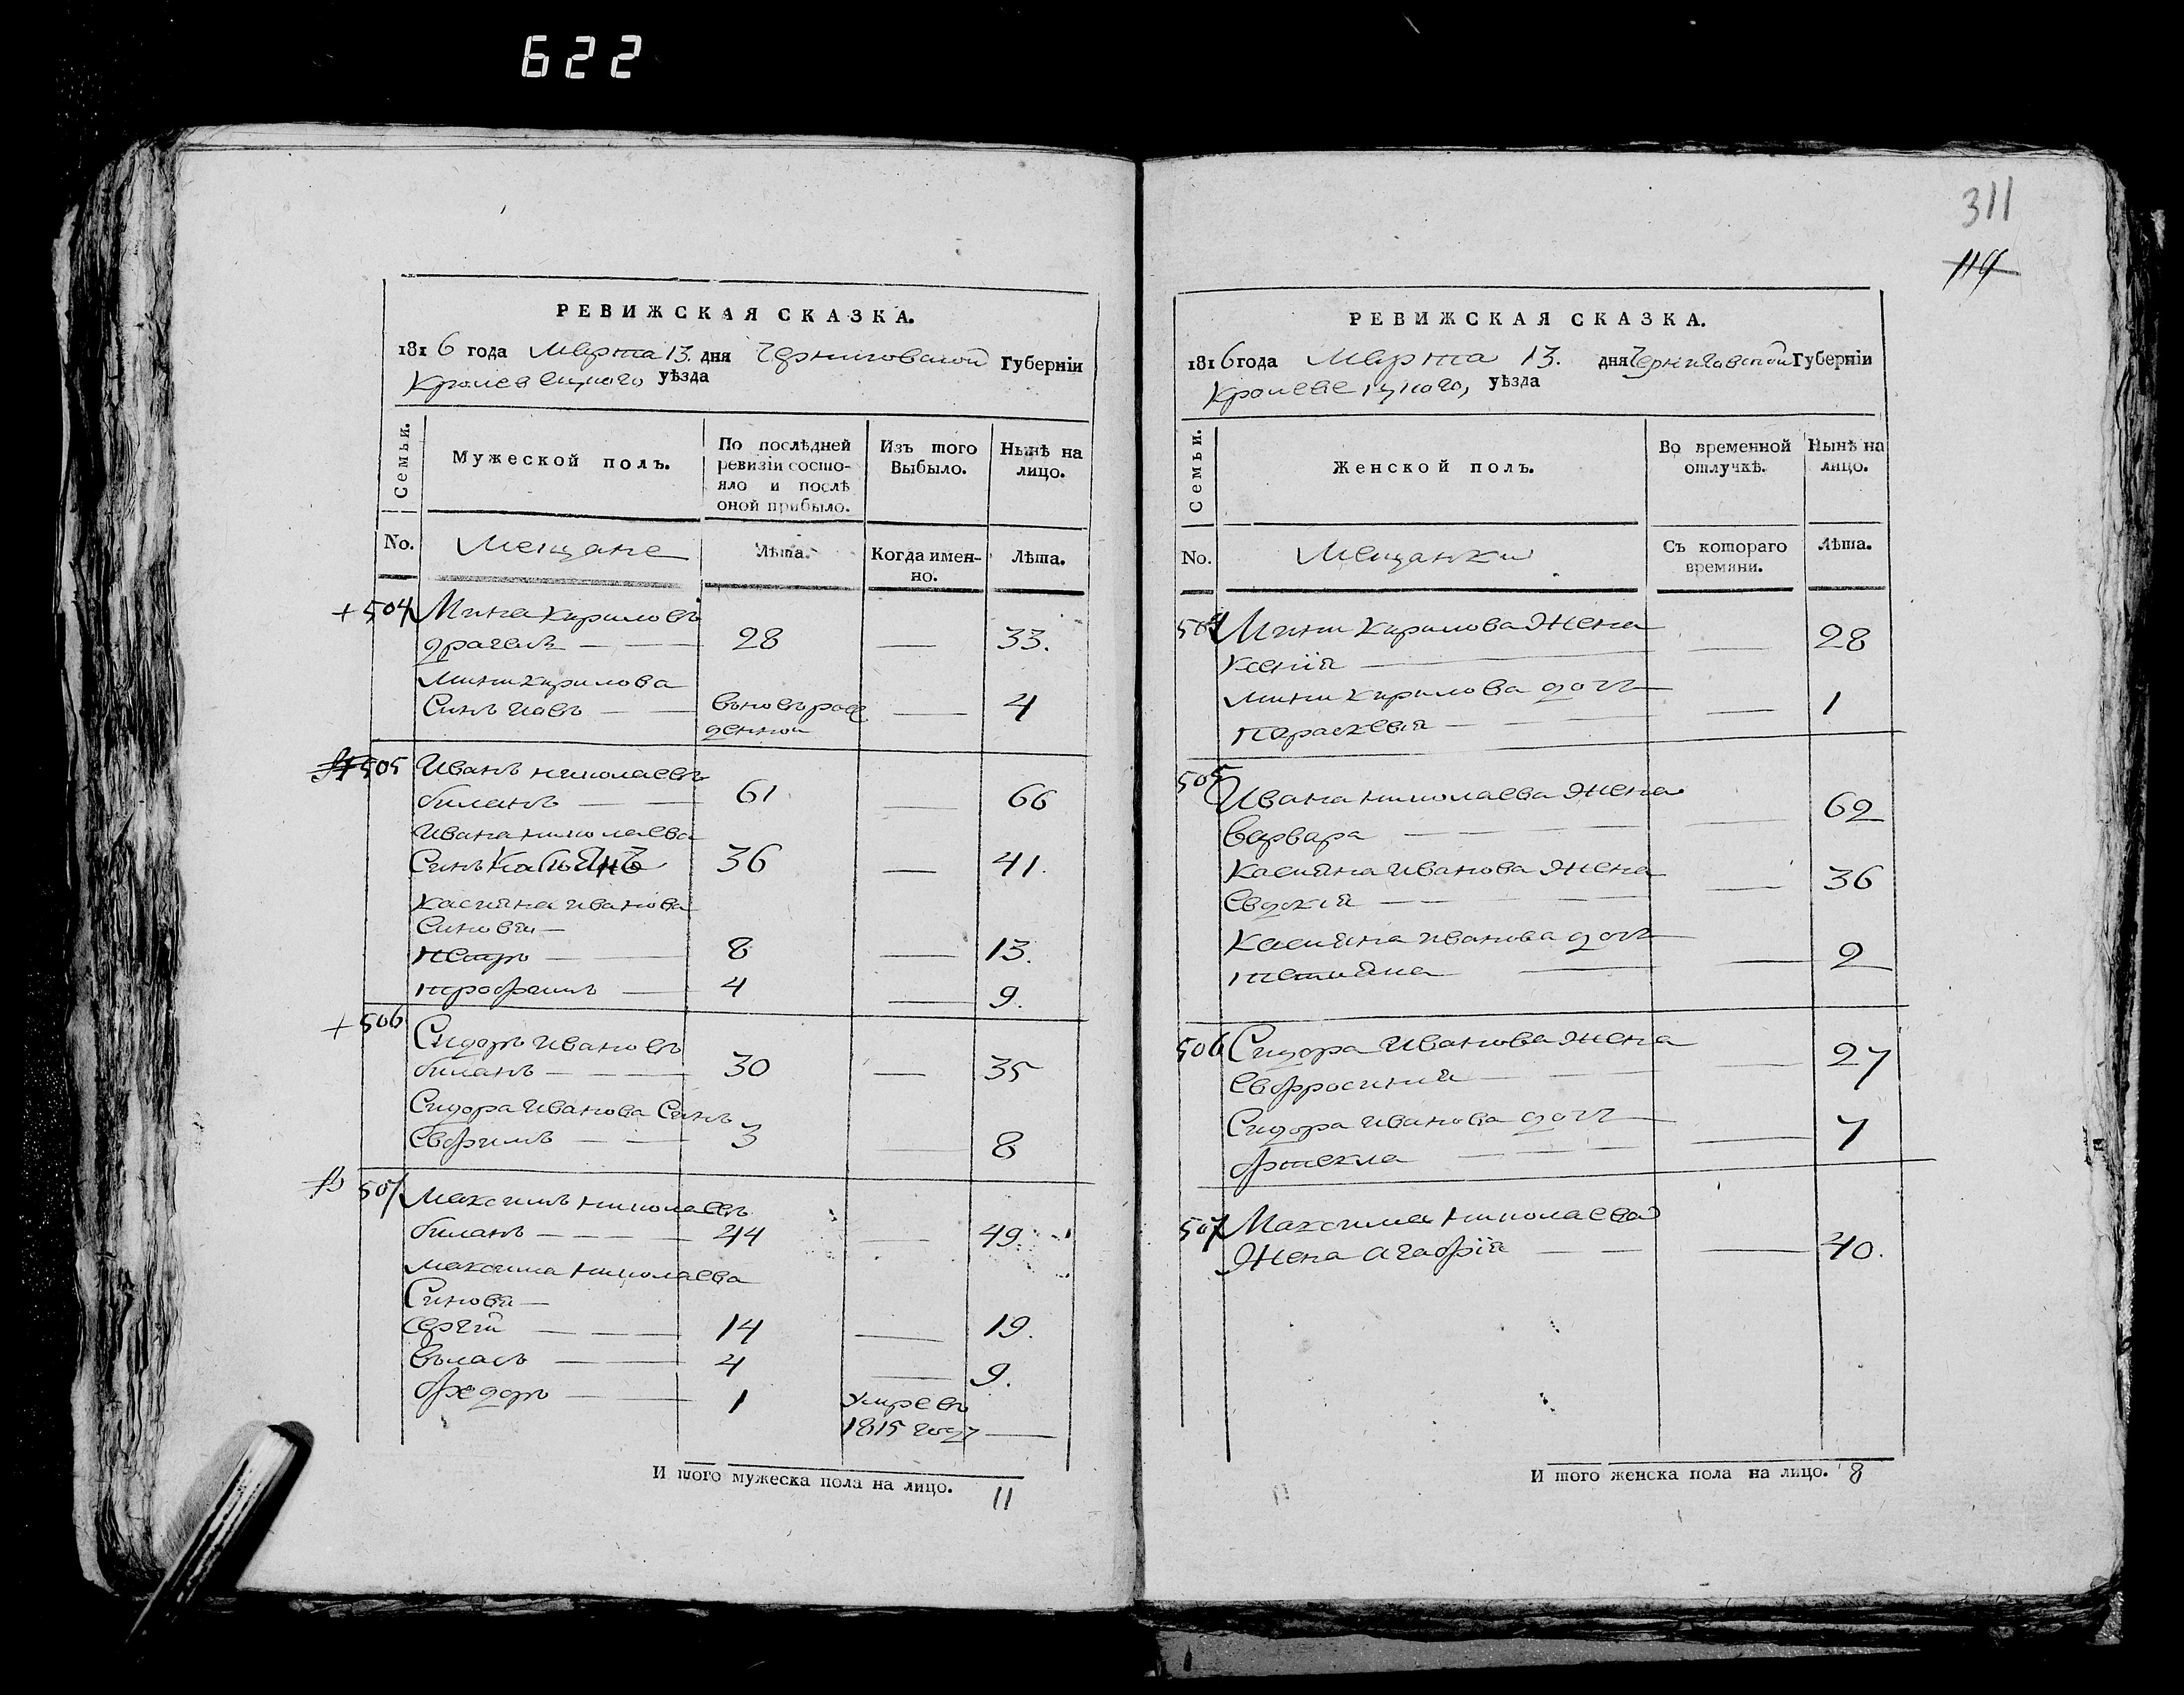 622
РЕВИЖСКАЯ СКАЗКА.
1816 года Марта 13. дня Черниговской Губерніи
Кролевецкого уѣзда
Семьи.
Мужеской полъ.
По послѣдней
ревизіи состо-
яло и послѣ
оной прибыло.
Изъ того
Выбыло.
Нынѣ на
лицо.
No.
Мещане
Лѣта.
Когда имен-
но.
Лѣта.
+ 504 Мина Кириловъ
28 — 33.
Мини Кирилова
Синъ Иовъ — вновърож
денной — 4
505 Иванъ Николаевъ
биланъ — 61 — 66
Ивана Николаева
Синъ Касиянъ 36 — 41.
Касияна Иванова
Синовя —
Петръ — 8 — 13.
Трофимъ — 4 — 9.
+ 506 Сидоръ Ивановъ
биланъ — 30 — 35
Сидора Иванова Синъ
Евфимъ — 3 — 8
507 Максимъ Николаевъ
биланъ — 44 — 49
Максима Николаева
Синовя —
Сергий — 14 — 19.
Власъ — 4 — 9.
Федоръ — 1 Умре въ
1815 году —
И того мужеска пола на лицо. 11
311
119
РЕВИЖСКАЯ СКАЗКА.
1816 года Марта 13. дня Черниговской Губерніи
Кролевецкого, уѣзда
Семьи.
Женской полъ.
Во временной
отлучкѣ.
Нынѣ на
лицо.
No.
Мещанки
Съ котораго
времяни.
Лѣта.
504 Мини Кирилова Жена
Ксенія — 28
Мини Кирилова дочь
Параскевия — 1
505 Ивана Николаева Жена
Варвара — 62
Касияна Иванова Жена
Евдокия — 36
Касияна Иванова дочь
Татияна — 2
506 Сидора Иванова Жена
Евфросиния — 27
Сидора Иванова дочь
Фтекла — 7
507 Максима Николаева
Жена Агафія — 40.
И того женска пола на лицо. 8